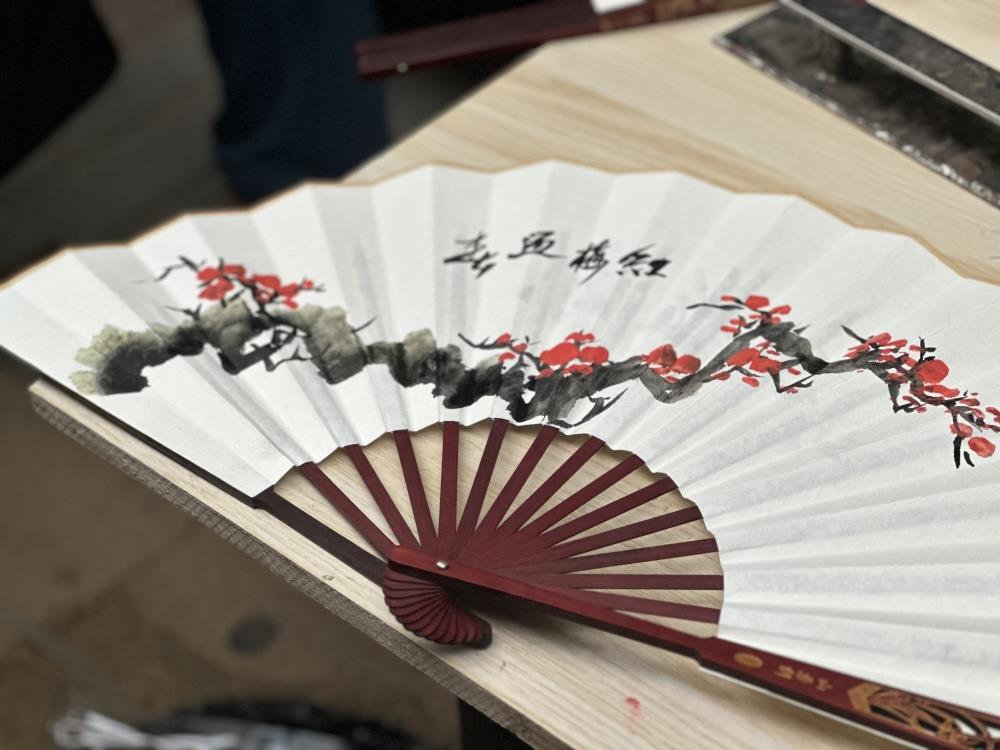 紅梅迎春